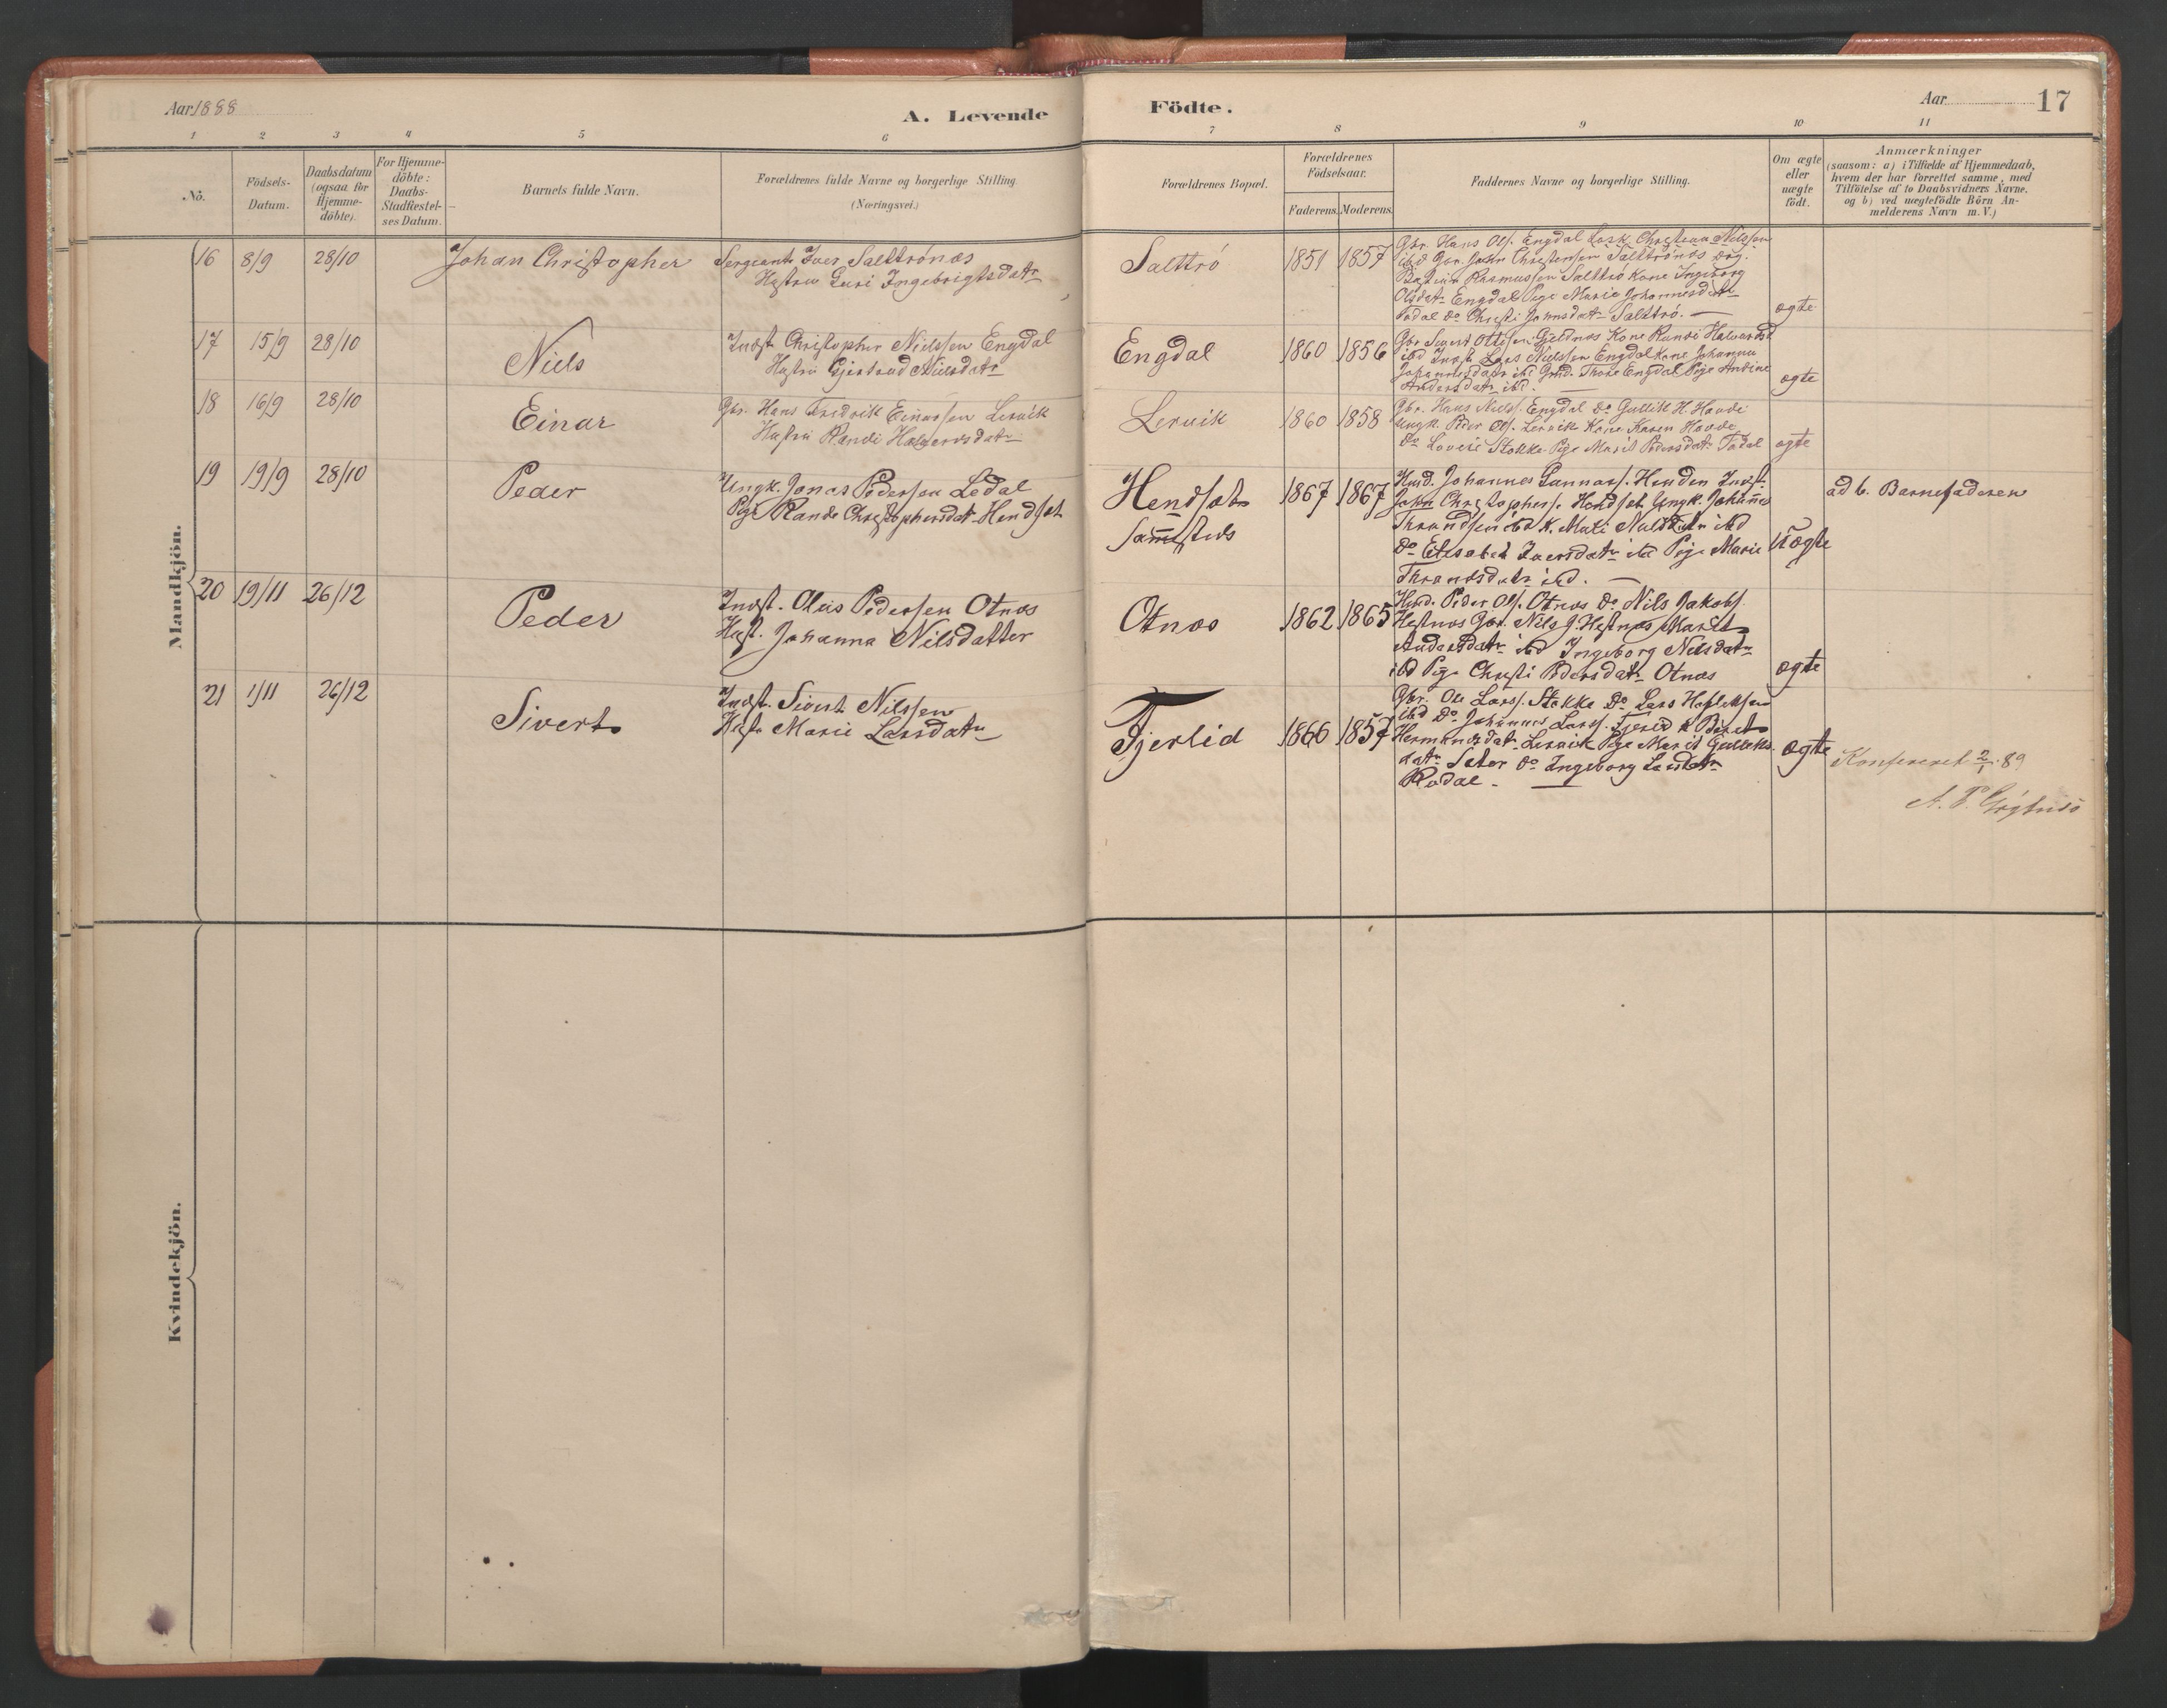 Aar 1888
A. Levende Födte.
Aar 17
1 2 3 4 5 6 7 8 9 10 11
No.
Födsels-
Datum.
Daabsdatum
(ogsaa for
Hjemme-
döbte).
For Hjemme-
döbte:
Daabs-
Stadfæstel-
ses Datum.
Barnets fulde Navn.
Forældrenes fulde Navne og borgerlige Stilling
(Næringsvei.)
Forældrenes Bopæl.
Forældrenes
Födselsaar.
Faderens. Moderens.
Faddernes Navne og borgerlige Stilling.
Om ægte
eller
uægte
født.
Anmærkninger
(saasom: a) i Tilfælde af Hjemmedaab,
hvem der har forrettet samme, med
Tilföielse af to Daabsvidners Navne,
og b) ved uægtefödte Börn An-
melderens Navn m. V.)
Mandkjön.
16 8/9 28/10 Johan Christopher
Sergeant Iver Salttrónæs
Hustru Guri Ingebrigtsdatr
Salttró 1851 1857
Gbr. Hans Ols. Engdal Christian Nilssen
ibd Gbr. John Christensen Salttrónæs
Rasmussen Salttró Kone Ingeborg
Olsdatr Engdal Pige Marie Johannesdatr
Todal Do Christi Johnsdatr Salttró.
ægte
17 15/9 28/10 Niels
Indst Christopher Nielssen Engdal
Hustru Gjertrud Nielsdatr
Engdal 1860 1856
Gbr Sivert Gjeldnæs Kone Randi
ibd Indst Lars Nielssen Engdal Kone Johanna
Johannesdatr ibd Thore Engdal Pige
Andersdatr ibd.
ægte
18 16/9 28/10 Einar
Gbr. Hans Fredrik Einarssen Lervik
Hustru Randi Halvorsdatr
Lervik 1860 1858
Gbr. Hans Niels. Engdal Do Gullik H. Hovde
Ungk. Peder Ols. Lervik Kone Karen Hovde
Do Stokke Pige Marit Pedersdatr Todal
ægte
19 19/9 28/10 Peder
Ungk. Jonas Pedersen Ledal
Pige Rande Christophersdatr Hendset
Hendset
Sammesteds
1867 1867
Husd. Johannes Gunnars. Henden Indst.
John Christophers. Hendset Ungk. Johannes
Throndsen ibd K. Mali ibd
Do Elisabet Iversdatr ibd Pige Marie
Throndsdatr ibd.
Uægte
ad b. Barnefaderen
20 19/11 26/12 Peder
Indst. Oleus Pedersen Otnæs
Hust. Johanna Nilsdatter
Otnæs 1862 1865
Husd. Peder Ols. Otnæs Do Nils Jakobs.
Hestnæs Gbr. Nils J. Hestnæs Marit
Andersdatr ibd Ingeborg Nilsdatr
ibd Pige Christi Pedersdatr Otnæs
ægte
21 1/11 26/12 Sivert
Indst. Sivert Nilssen
Hustr Marie Larsdatr
Fjerlid 1866 1857
Gbr. Ole Larss. Stokke Do Lars
ibd Do Johannes Larss. Fjerlid K Beret
Hermansdatr Lervik Pige Marit Gulleks
datr Sæter Do Ingeborg Larsdatr
Rodal.
ægte
Konfereret 2/1 89
Kvindekjön.